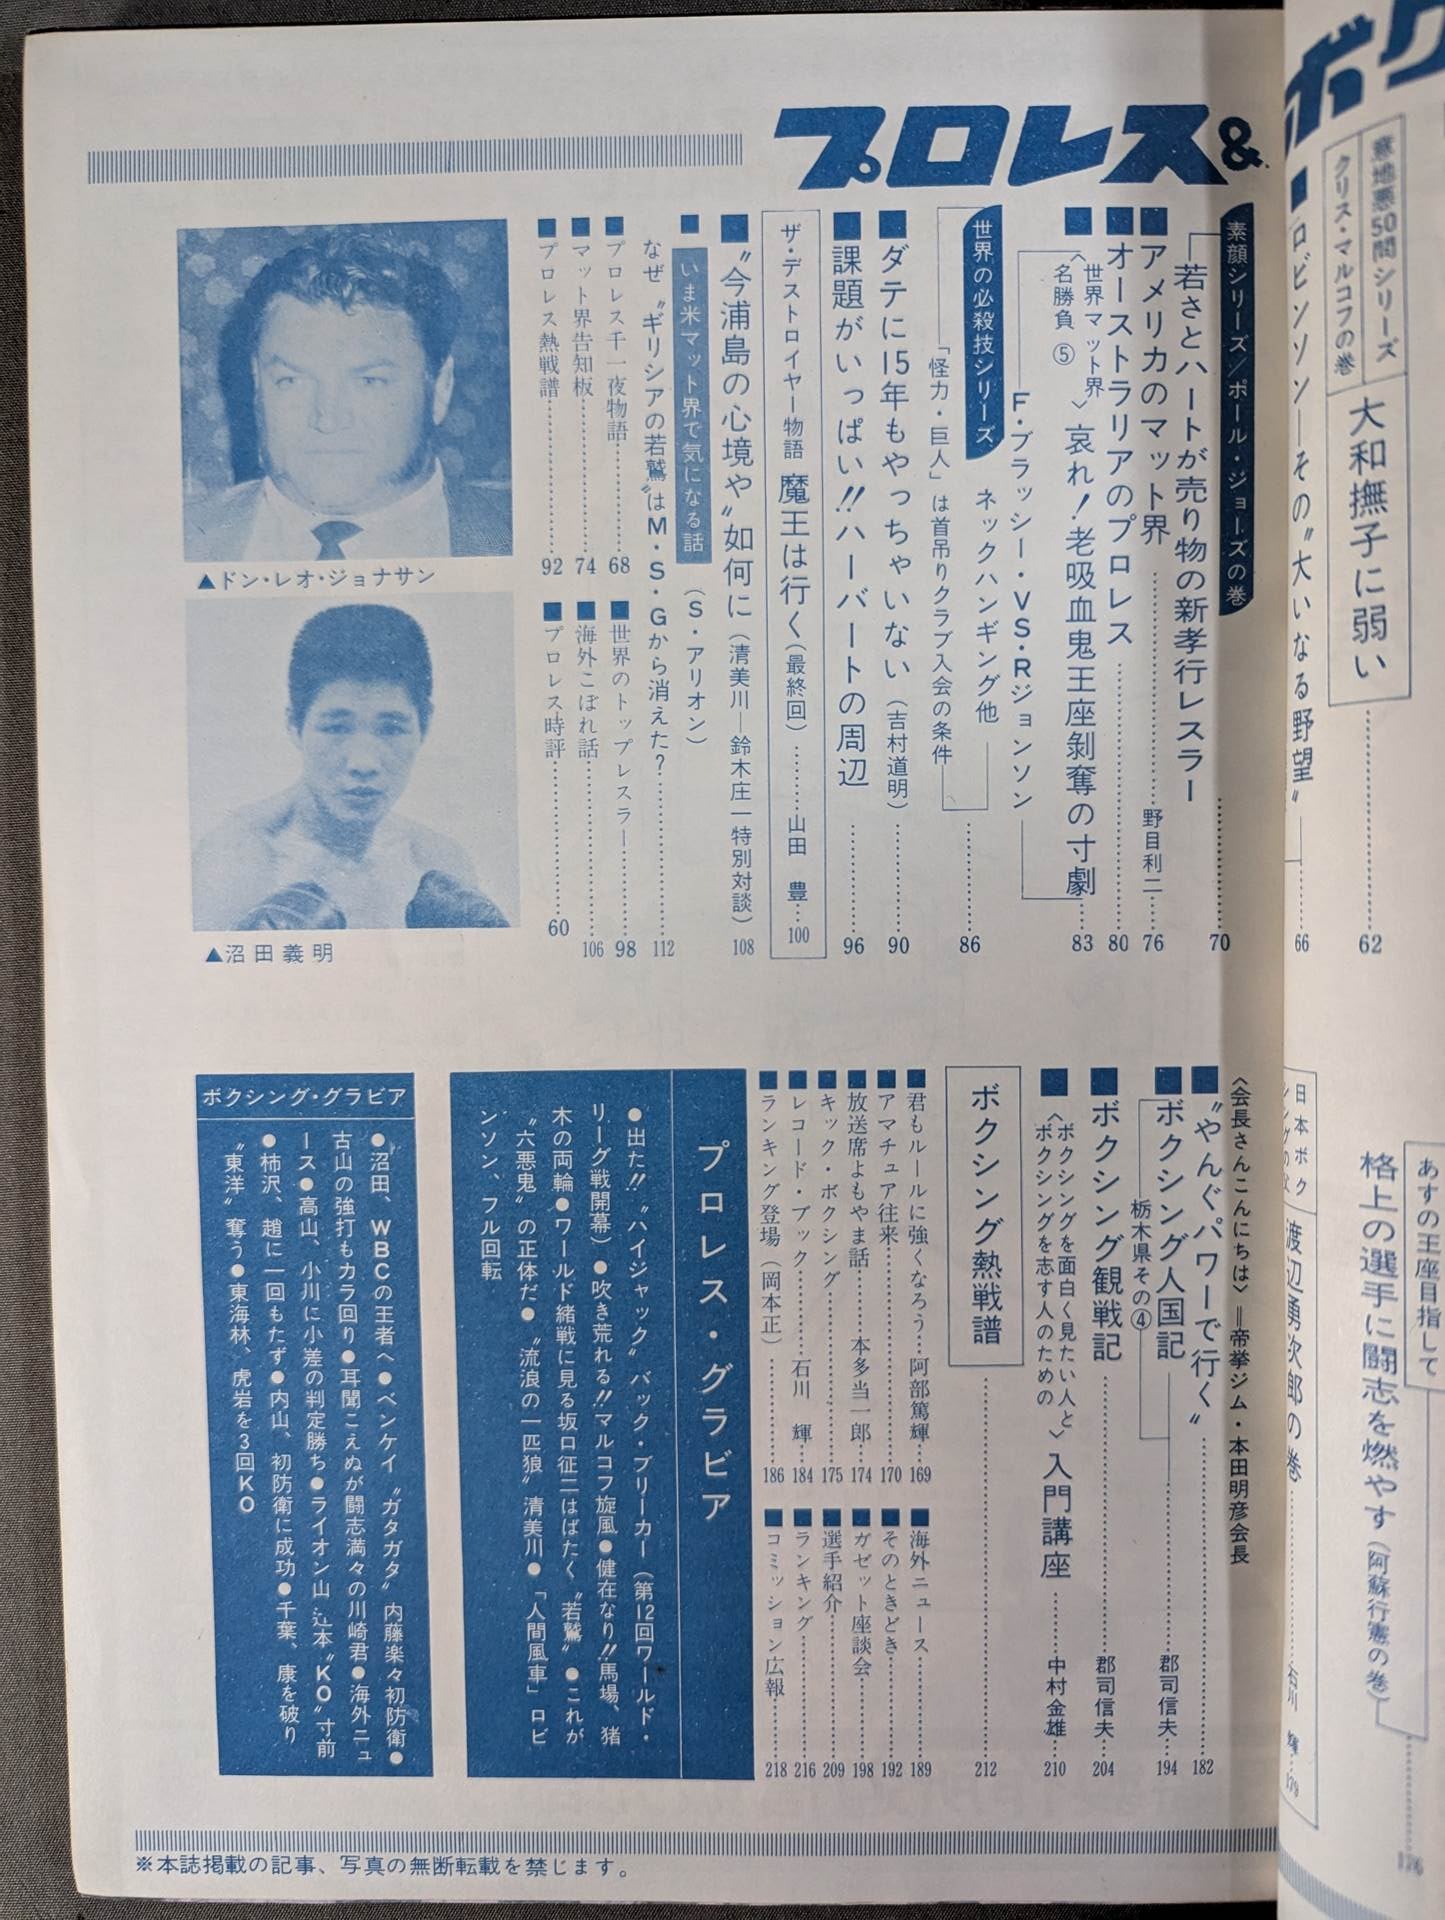 プロレス&
ボク
意地悪50問シリーズ
クリス・マルコフの巻
大和撫子に弱い 62
■ロビンソン―その〝大いなる野望〟 66
素顔シリーズ/ポール・ジョーンズの巻
若さとハートが売り物の新孝行レスラー 70
■アメリカのマット界 野目利二 76
■オーストラリアのプロレス 80
■〈世界マット界名勝負⑤〉哀れ!老吸血鬼王座剝奪の寸劇 83
F・ブラッシー・VS・R・ジョンソン
世界の必殺技シリーズ
ネックハンギング他 86
「怪力・巨人」は首吊りクラブ入会の条件
■ダテに15年もやっちゃいない(吉村道明) 90
■課題がいっぱい!!ハーバートの周辺 96
ザ・デストロイヤー物語 魔王は行く(最終回) 山田 豊 100
■〝今浦島の心境や〟如何に(清美川―鈴木庄一特別対談) 108
■いま米マット界で気になる話(S・アリオン)
なぜ〝ギリシアの若鷲〟はM・S・Gから消えた? 112
■プロレス千一夜物語 68
■世界のトップレスラー 98
■マット界告知板 74
■海外こぼれ話 106
■プロレス熱戦譜 92
■プロレス時評 60
▲ドン・レオ・ジョナサン
▲沼田義明
あすの王座目指して
格上の選手に闘志を燃やす(阿蘇行憲の巻) 126
日本ボク
渡辺勇次郎の巻 石川 輝 179
〈会長さんこんにちは〉=帝拳ジム・本田明彦会長
■〝やんぐパワーで行く〟 182
■ボクシング人国記 郡司信夫 194
栃木県その④
■ボクシング観戦記 郡司信夫 204
■〈ボクシングを面白く見たい人とボクシングを志す人のための〉入門講座 中村金雄 210
ボクシング熱戦譜 212
■君もルールに強くなろう 阿部篤輝 169
■海外ニュース 189
■アマチュア往来 170
■そのときどき 192
■放送席よもやま話 本多当一郎 174
■ガゼット座談会 198
■キック・ボクシング 175
■選手紹介 209
■レコード・ブック 石川 輝 184
■ランキング 216
■ランキング登場(岡本正) 186
■コミッション広報 218
プロレス・グラビア
●出た!!〝ハイジャック〟バック・ブリーカー(第12回ワールド・
リーグ戦開幕)●吹き荒れる!!マルコフ旋風●健在なり!!馬場、猪
木の両輪●ワールド緒戦に見る坂口征二はばたく〝若鷲〟●これが
〝六悪鬼〟の正体だ●〝流浪の一匹狼〟清美川●「人間風車」ロビ
ンソン、フル回転
ボクシング・グラビア
●沼田、WBCの王者へ●ベンケイ〝ガタガタ〟内藤楽々初防衛●
古山の強打もカラ回り●耳聞こえぬが闘志満々の川崎君●海外ニュ
ース●高山、小川に小差の判定勝ち●ライオン山 辻本〝KO〟寸前
●柿沢、趙に一回もたず●内山、初防衛に成功●千葉、康を破り
〝東洋〟奪う●東海林、虎岩を3回KO
※本誌掲載の記事、写真の無断転載を禁じます。